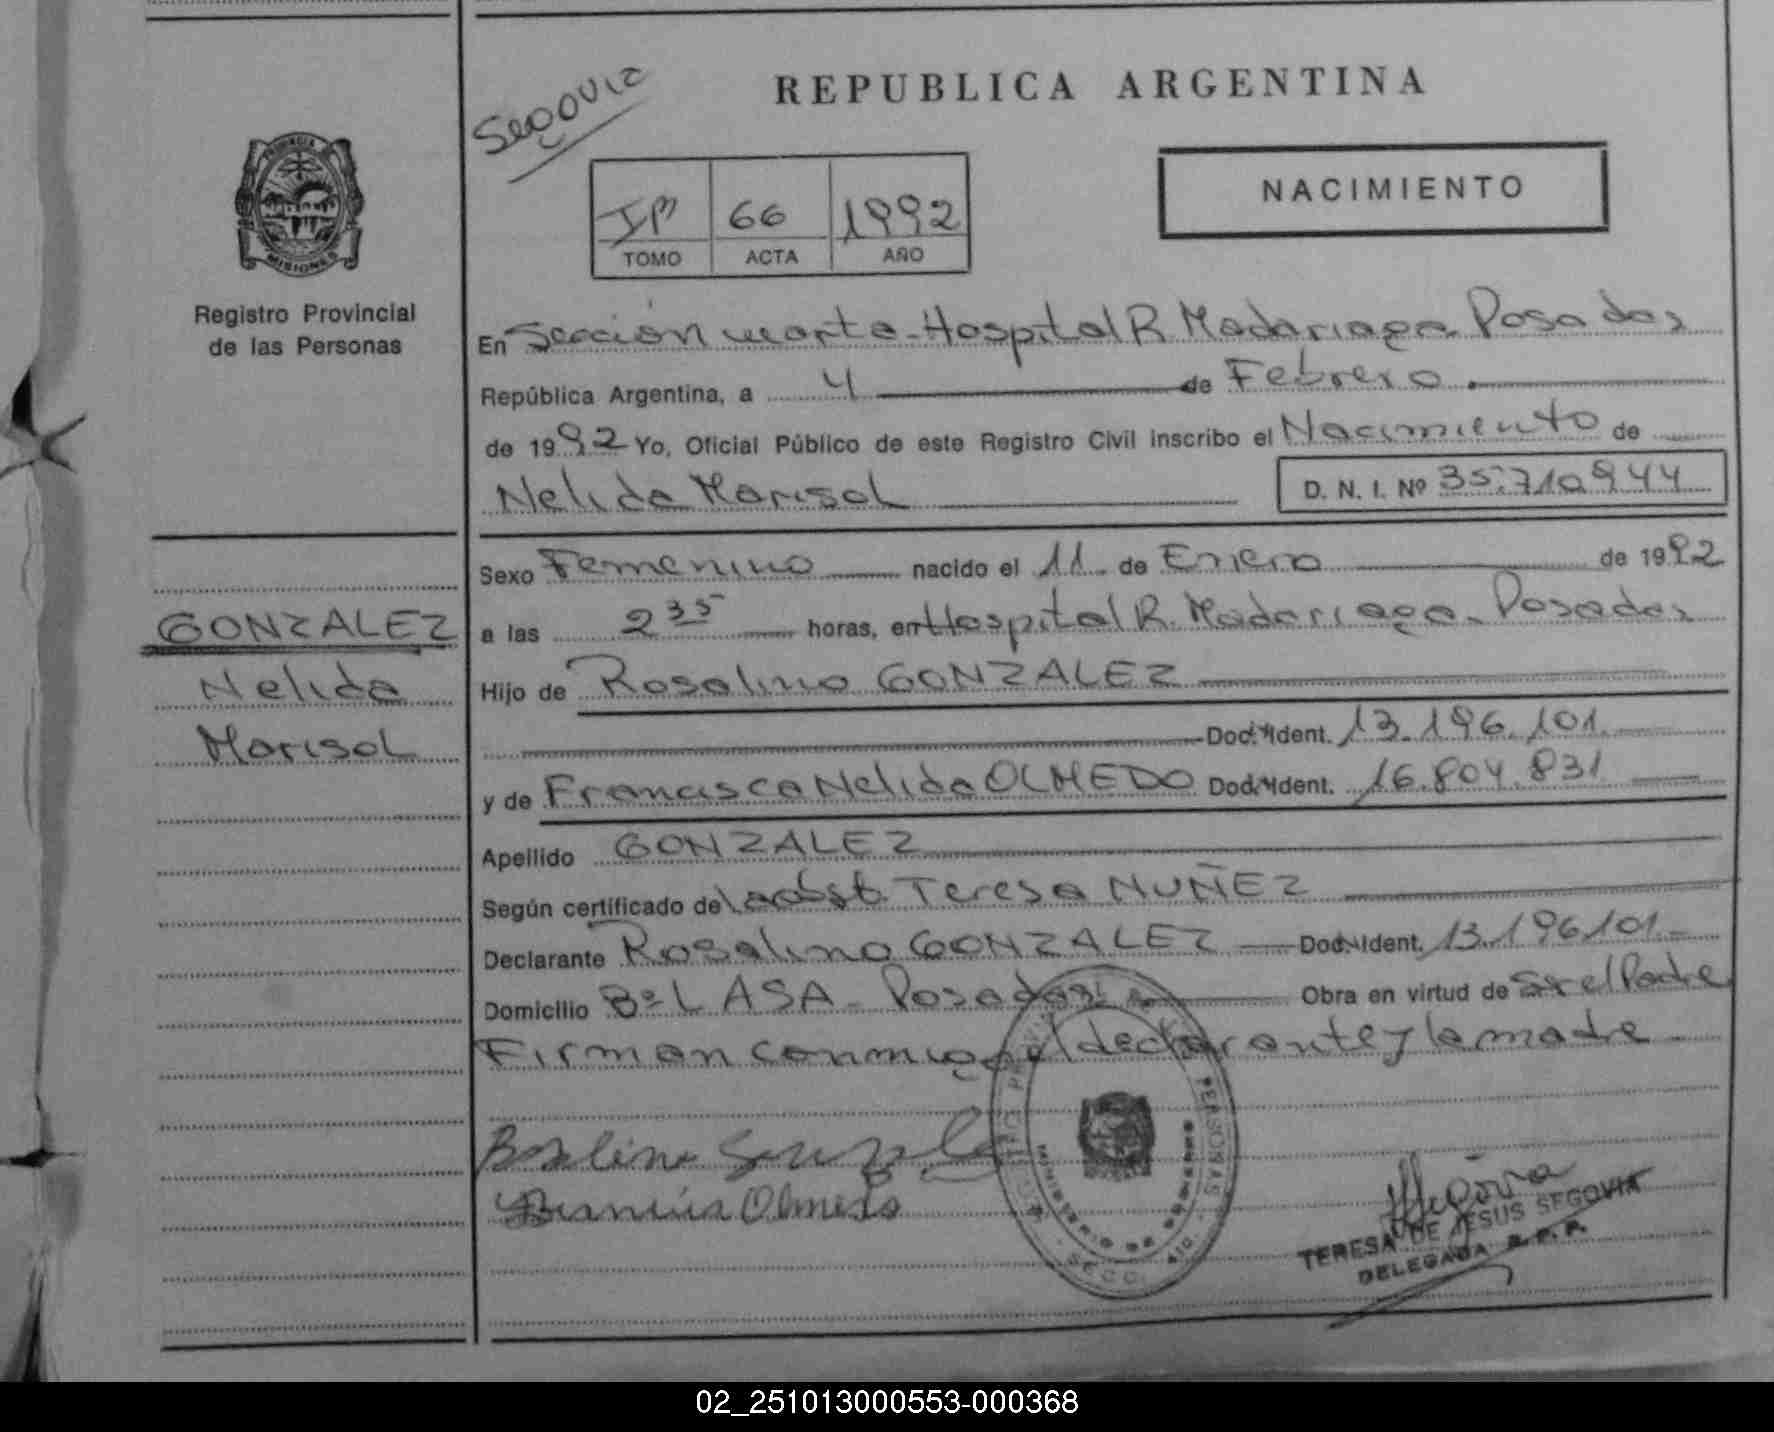 Segovia
REPUBLICA ARGENTINA
NACIMIENTO
66 1992
TOMO ACTA AÑO
PROVINCIA DE
MISIONES
Registro Provincial
de las Personas
En Sección cuarta - Hospital R. Madariaga - Posadas
República Argentina, a 4 de Febrero
de 1992 Yo, Oficial Público de este Registro Civil inscribo el Nacimiento de
Nelida Marisol D. N. I. Nº 35.710.944
GONZALEZ
Nelida
Marisol
Sexo Femenino nacido el 11 de Enero de 1992
a las 2 35 horas, en Hospital R. Madariaga - Posadas
Hijo de Rosalino GONZALEZ
Doc. Ident. 13.196.101
y de Francisca Nelida OLMEDO Doc. Ident. 16.804.831
Apellido GONZALEZ
Según certificado de la obst. Teresa NUÑEZ
Declarante Rosalino GONZALEZ Doc. Ident. 13.196101
Domicilio Bº LASA - Posadas Obra en virtud de ser el Padre
Firman conmigo el declarante y la madre
Rosalino Gonzale
Francisca Olmedo
PERSONAS
MINISTERIO DE
SECC.
Segovia
TERESA DE JESUS SEGOVIA
DELEGADA R. P. P.
02_251013000553-000368